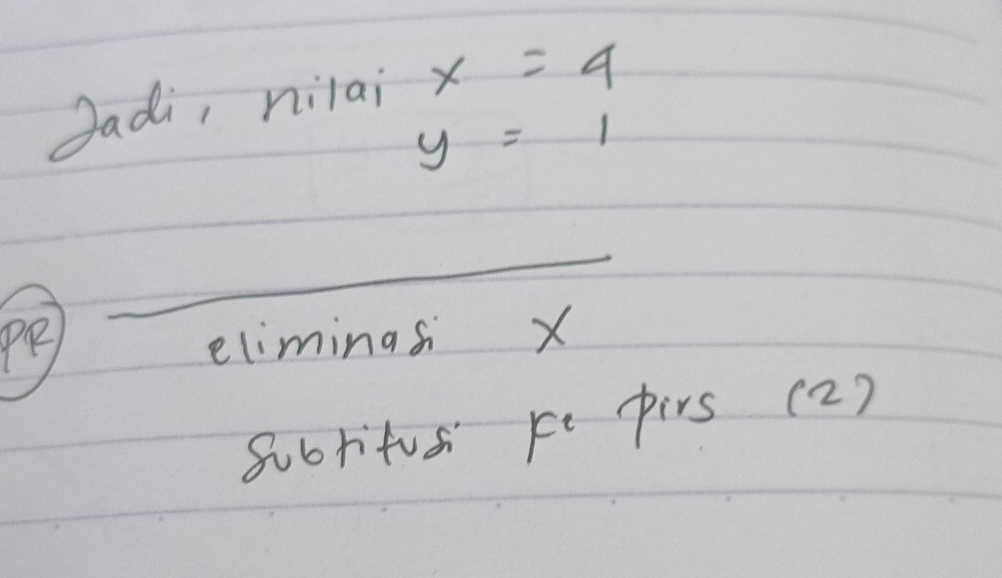 Jadi, nilai x = 4
y = 1
PR
eliminasi x
Subtitusi ke pers (2)